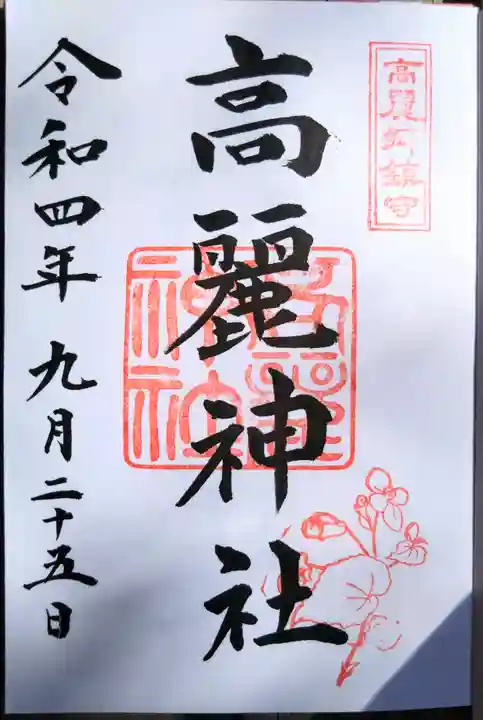 高麗郷鎮守
高麗神社
高麗神社
令和四年 九月二十五日